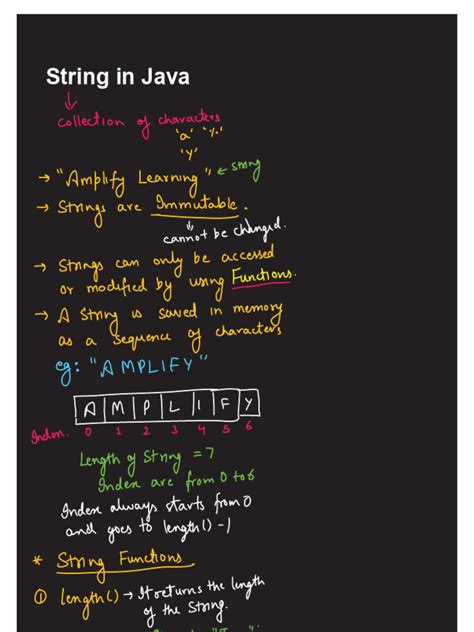 String in Java
collection of characters
'a' '%'
'y'
→ "Amplify Learning" ← string
→ Strings are Immutable.
cannot be changed.
→ Strings can only be accessed
or modified by using Functions.
→ A String is saved in memory
as a sequence of characters
eg: "AMPLIFY"
A M P L I F Y
Index. 0 1 2 3 4 5 6
Length of String = 7
Index are from 0 to 6
Index always starts from 0
and goes to length() - 1
* String Functions
① length() → It returns the length
of the String.